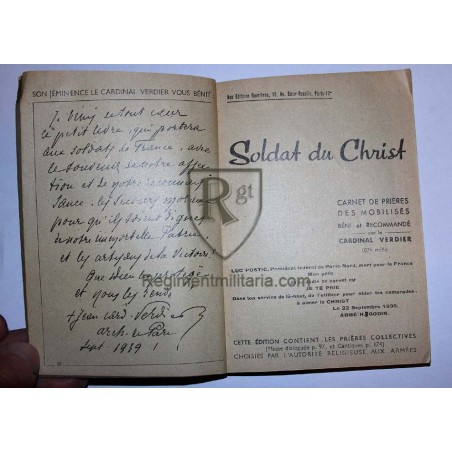 SON EMINENCE LE CARDINAL VERDIER VOUS BÉNIT
Je bénis de tout cœur
ce petit livre, qui portera
aux soldats de France, avec
le souvenir de notre affec
tion et de notre reconnais
sance, les secours
pour qu'ils soient dignes
de notre immortelle Patrie
et les artisans de la Victoire!
Que Dieu
et vous
+ Jean card. Verdier
arch. de Paris
Sept. 1939!
Soldat du Christ
CARNET DE PRIÈRES
DES MOBILISÉS
BÉNI et RECOMMANDÉ
par le
CARDINAL VERDIER
LUC POSTIC, Président fédéral de Paris-Nord, mort pour la France
Mon père
ce carnet
JE TE PRIE
Dans ton service de là-haut, de l'utiliser pour aider tes camarades
à aimer le CHRIST
Le 22 Septembre 1939.
ABBÉ H. GODIN.
CETTE ÉDITION CONTIENT LES PRIÈRES COLLECTIVES
(Messe dialoguée p. 97, et Cantiques p. 174)
CHOISIES PAR L'AUTORITÉ RELIGIEUSE AUX ARMÉES
R gt
Regimentmilitaria.com